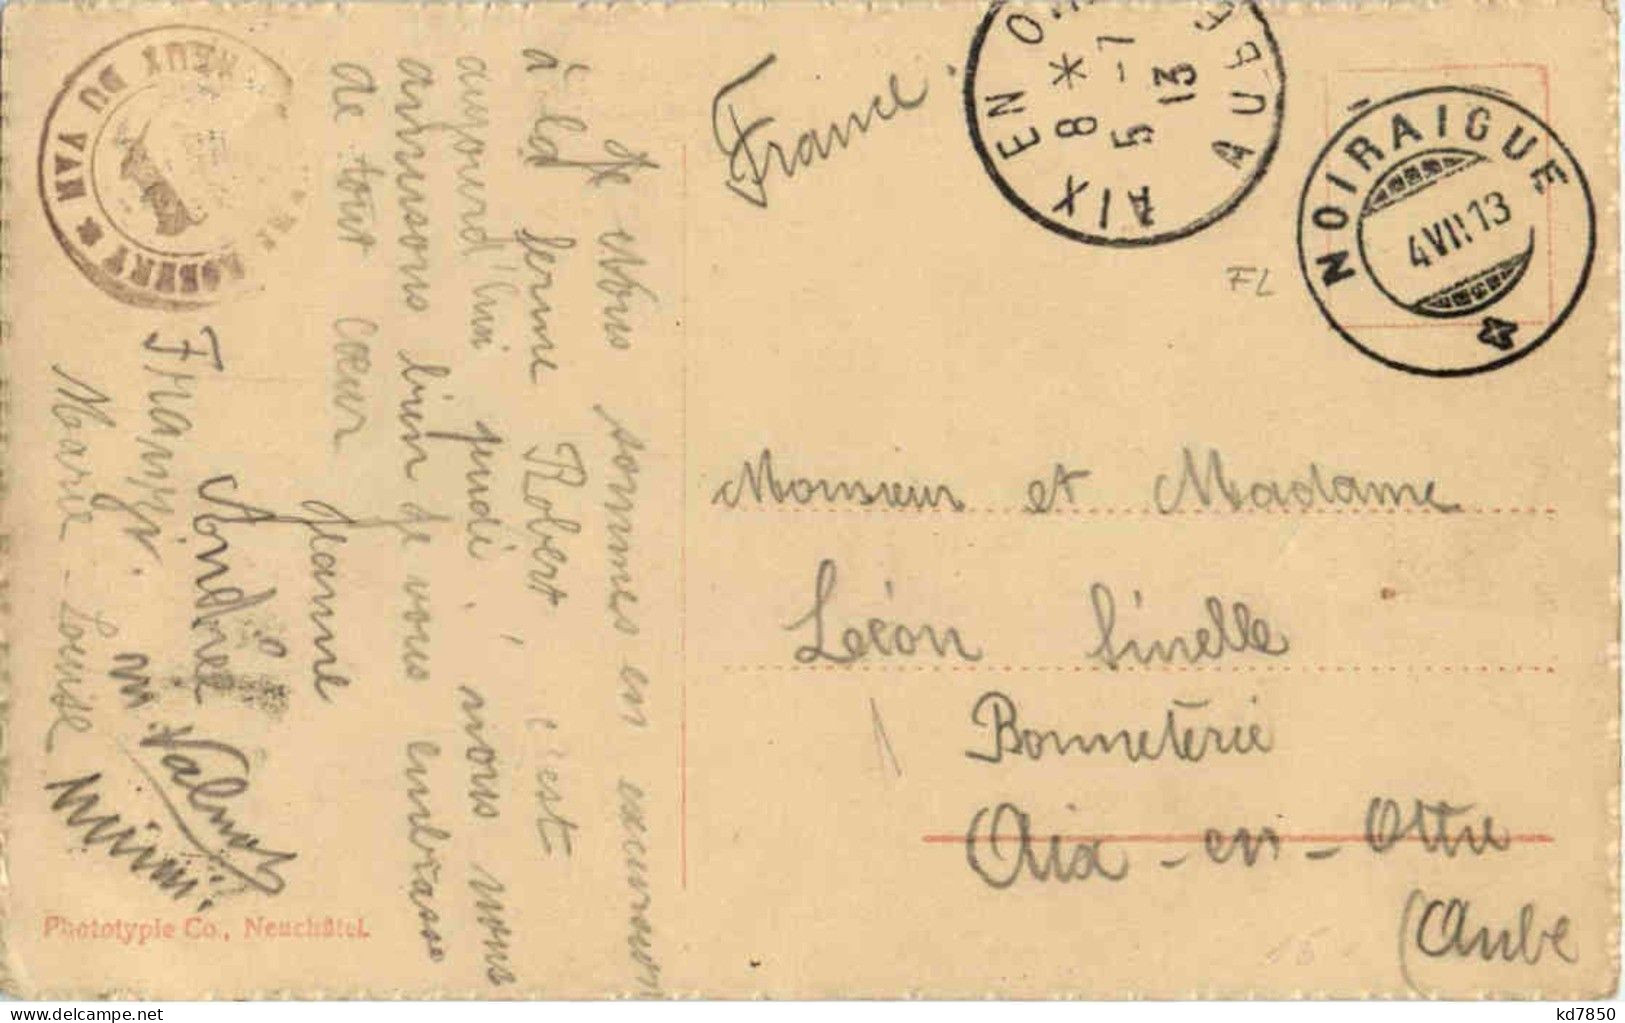 Je Nous sommes en excursion
à la ferme Robert, c'est
aujourd'hui jeudi, nous nous
amusons bien Je vous embrasse
de tout cœur
Jeanne
Andrée Valmot
Franny.
M.
Marie-Louise
Mimi.
France.
AIX EN O
AUBE
8 *
5 - 7
13
NOIRAIGUE
4 VII 13
FL
Monsieur et Madame
Léon Sinelle
Bonneterie
Aix-en-Othe
(Aube
EUX DU VAN
ROBERT *
Phototypie Co., Neuchâtel.
kd7850